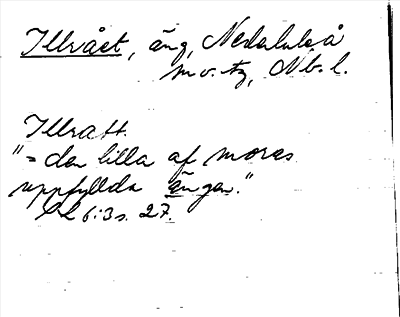 Illrået, äng, Nedaluleå
sn o. tg, Nb. l.
Illratt.
"= den lilla af moras
uppfyllda ängen."
6:3 s. 27.